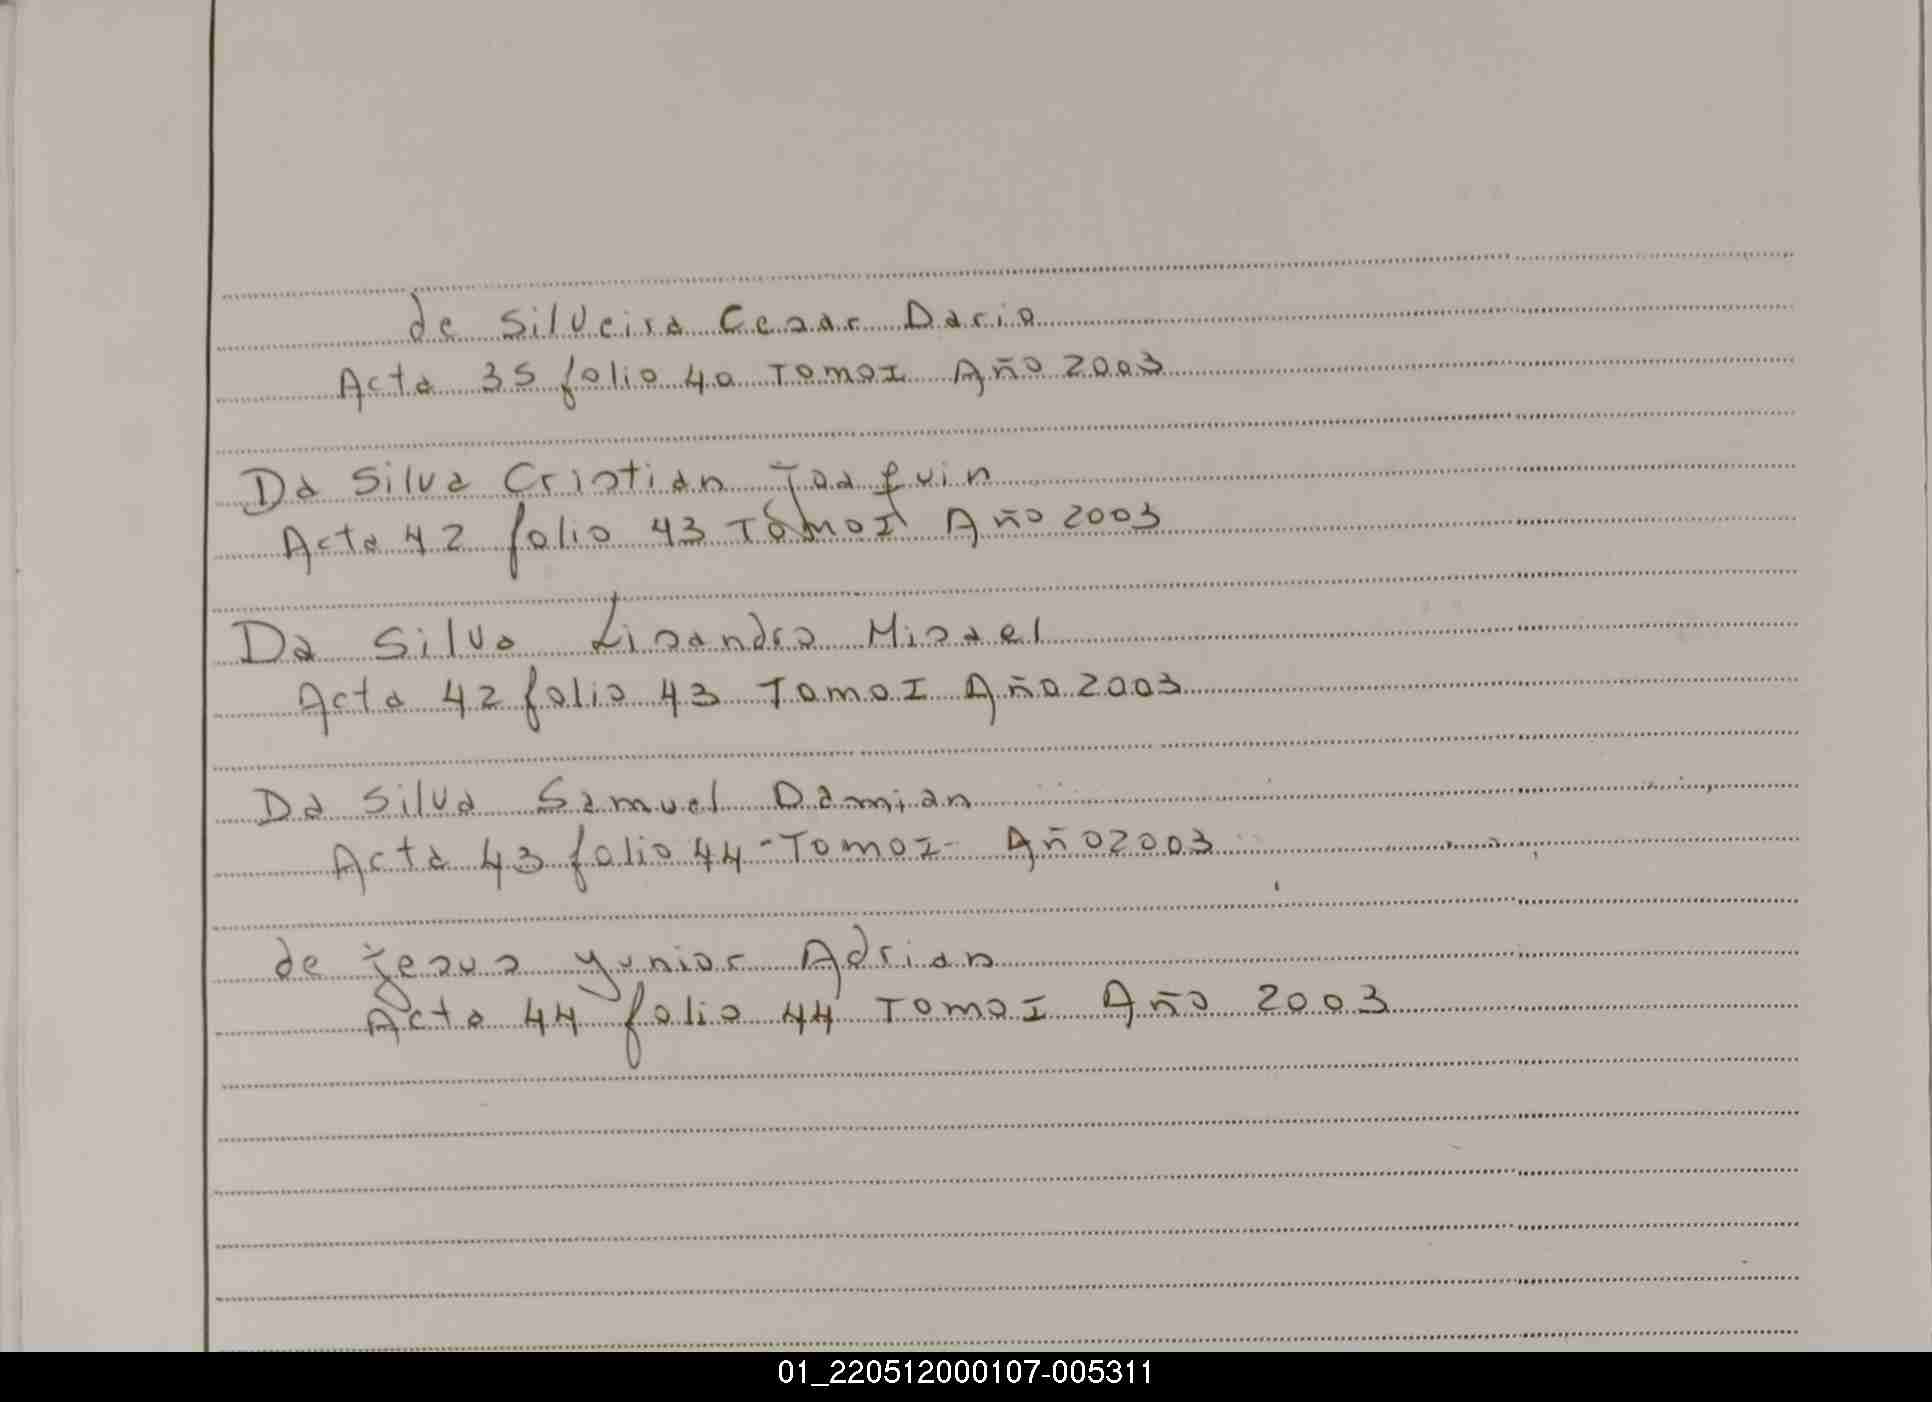 de Silveira Cesar Dario
Acta 35 folio 40 Tomo I Año 2003
Da Silva Cristian Joaquin
Acta 42 folio 43 Tomo I Año 2003
Da Silva Lisandro Misael
Acta 42 folio 43 Tomo I Año 2003
Da Silva Samuel Damian
Acta 43 folio 44 - Tomo I - Año 2003
de Jesus Yunior Adrian
Acta 44 folio 44 Tomo I Año 2003
01_220512000107-005311